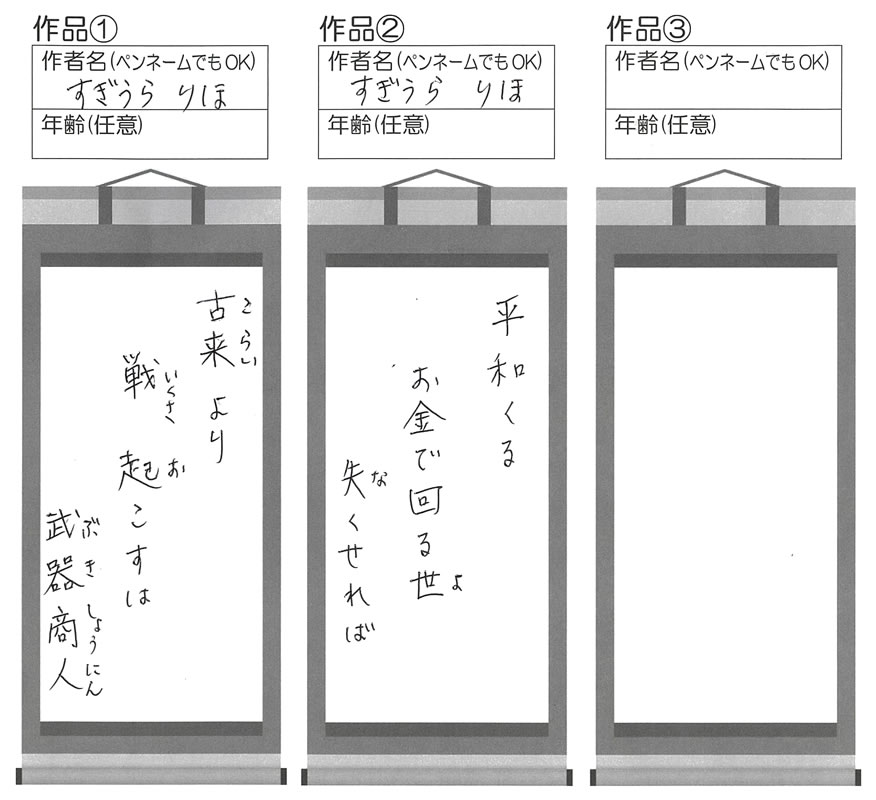 作品①
作者名(ペンネームでもOK)
すぎうら りほ
年齢(任意)
古来より
こらい
戦 起こすは
いくさ お
武器商人
ぶきしょうにん
作品②
作者名(ペンネームでもOK)
すぎうら りほ
年齢(任意)
平和くる
お金で回る世
よ
失くせれば
な
作品③
作者名(ペンネームでもOK)
年齢(任意)